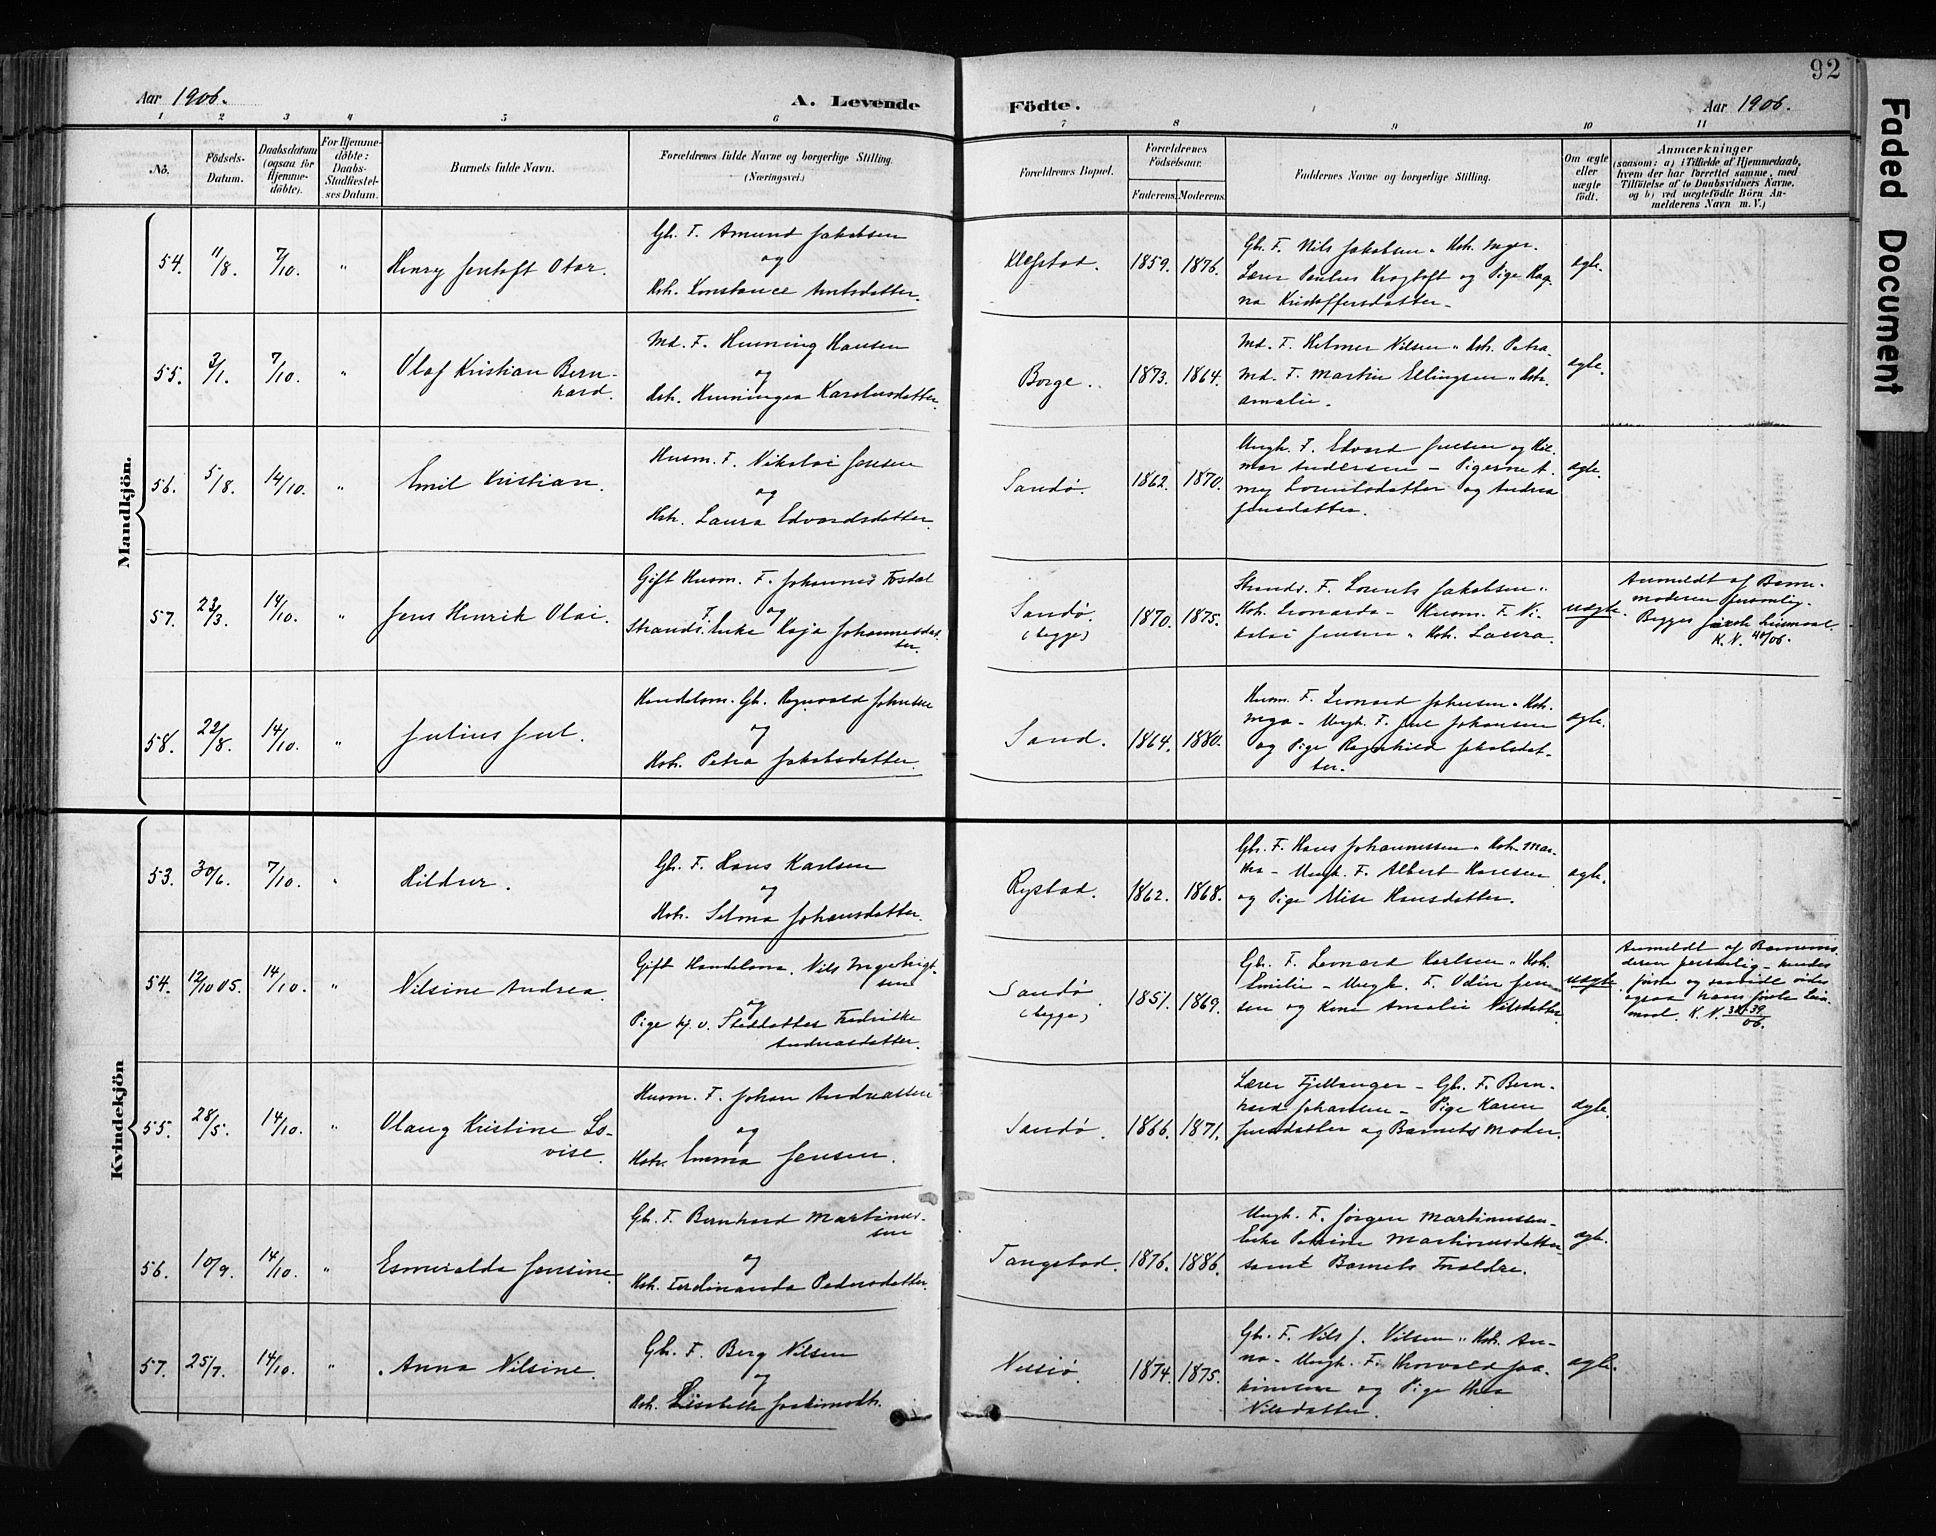 92
Faded Document
Aar 1906.
A. Levende
Födte.
Aar 1906.
1 2 3 4 5 6 7 8 9 10 11
No.
Födsels-
Datum.
Daabsdatum
(ogsaa for
Hjemme-
döbte).
For Hjemme-
döbte:
Daabs-
Stadfæstel-
ses Datum.
Barnets fulde Navn.
Forældrenes fulde Navne og borgerlige Stilling.
(Næringsvei.)
Forældrenes Bopæl.
Forældrenes
Födselsaar.
Faderens.
Moderens.
Faddernes Navne og borgerlige Stilling.
Om ægte
eller
uægte
født.
Anmærkninger
(saasom: a) i Tilfælde af Hjemmedaab,
hvem der har forrettet samme, med
Tilföielse af to Daabsvidners Navne,
og b) ved uægtefödte Börn An-
melderens Navn m. V.)
Mandkjön.
54. 11/8. 7/10. " Henry Jentoft Otar.
Gbr. F. Amund Jakobsen
og
Hst. Konstance Amtsdatter.
Klefstad. 1859. 1876.
Gbr. F. Nils Jakobsen " Hst. Inger.
Lærer Paulus Krogtoft og Pige Rag-
na Kristoffersdatter -
ægte.
55. 3/1. 7/10. " Olaf Kristian Bern-
hard.
Md. F. Henning Hansen
og
Hst. Henningea Karolusdatter.
Borge. 1873. 1864.
Md. F. Helmer Nilsen " Hst. Petra.
Md. F. Martin Ellingsen " Hst.
Amalie.
ægte.
56. 5/8. 14/10. " Emil Kristian.
Husm. F. Nikolai Jensen
og
Hst. Laura Edvardsdatter.
Sandö. 1862. 1870.
Ungk. F. Edvard Jensen og Hil-
mar Andersen - Pigerne A-
my Lorntsdatter og Andrea
Jensdatter.
ægte.
57. 23/3. 14/10. " Jens Henrik Olai.
Gift Husm. F. Johannes Fosdal
og
Strands. F. Enke Kaja Johannesdat-
ter.
Sandö.
(begge) 1870. 1875.
Strands. F. Lornts Jakobsen "
Hst. Leonarda - Husm. F. Ni-
kolai Jensen " Hst. Laura.
uægte.
Anmeldt af Barne-
moderen personlig.
Begges første Leiermaal.
K. N. 40/06.
58. 22/8. 14/10. " Julius Jul.
Handelsm. Gbr. Ragnvald Johnsen
og
Hst. Petra Jakobsdatter.
Sand. 1864. 1880.
Husm. F. Leonard Johnsen " Hst.
Inga - Ungk. F. Jul Johansen
og Pige Ragnhild Jakobsdat-
ter.
ægte.
Kvindekjön
53. 30/6. 7/10. " Hildur.
Gbr. F. Hans Karlsen
og
Hst. Selma Johansdatter.
Rystad. 1862. 1868.
Gbr. F. Hans Johannessen " Hst. Mar-
tha - Ungk. F. Albert Hansen
og Pige Elise Hansdatter.
ægte.
54. 12/10 05. 14/10. " Nilsine Andrea.
Gift Handelsm. Nils Ingebrigt-
sen
og
Pige Fredrikke
Andreasdatter.
Sandö
(begge) 1851. 1869.
Gbr. F. Leonard Karlsen " Hst.
Emilie - Ungk. F. Odin Jen-
sen og Kone Amalie Nilsdatter.
uægte.
Anmeldt af Barnemo-
deren personlig - hendes
første og
ogsaa hans første Leier-
maal. K. N. 39/06.
55. 28/5. 14/10. " Olaug Kristine Lo-
vise.
Husm. F. Johan Andreassen
og
Hst. Emma Jensen.
Sandö. 1866. 1871.
Lærer Fjellanger - Gbr. F. Bern-
hard Johansen - Pige Karen
Jensdatter og Barnets Moder.
ægte.
56. 10/9. 14/10. " Esmeralda Jensine
Gbr. F. Bernhard Martinus-
sen
og
Hst. Ferdinanda Pedersdatter.
Tangstad. 1876. 1886.
Ungk. F. Jörgen Martinussen -
Enke Petrine Martinusdatter
samt Barnets Forældre.
ægte.
57. 25/7. 14/10. " Anna Nilsine.
Gbr. F. Berg Nilsen
og
Hst. Lisabeth Joakimsdtr.
Vessiö. 1874. 1875.
Gbr. F. Nils J. Nilsen " Hst. An-
na - Ungk. F. Thorvald Joa-
kimsen og Pige Thea
Nilsdatter.
ægte.